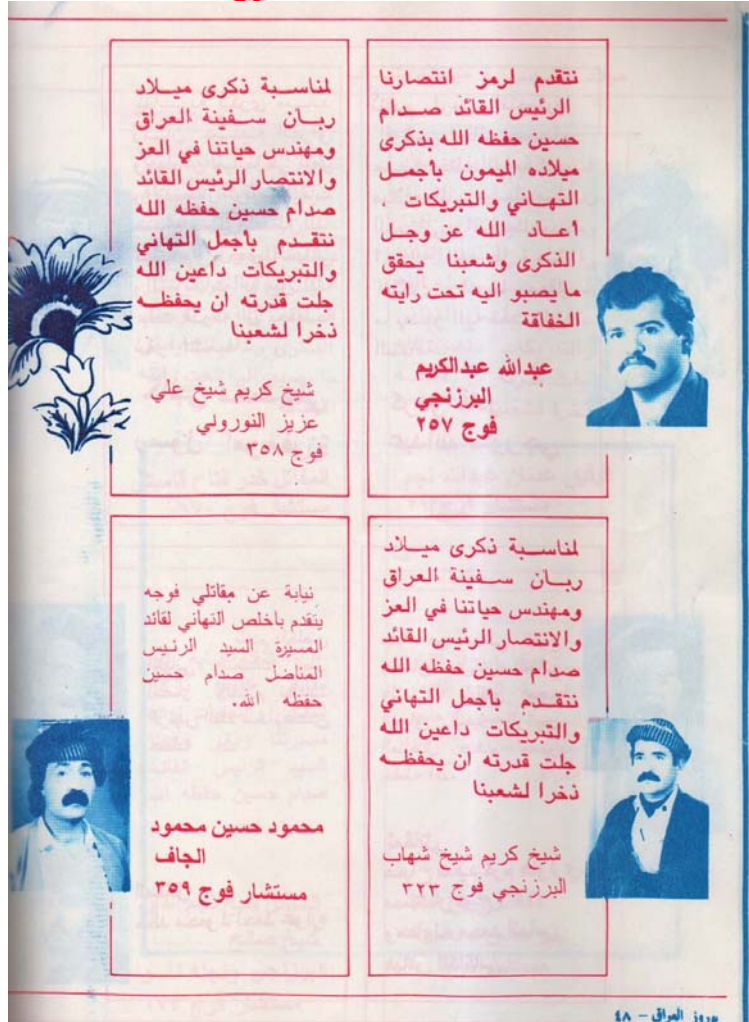 نتقدم لرمز انتصارنا
الرئيس القائد صدام
حسين حفظه الله بذكرى
ميلاده الميمون بأجمل
التهاني والتبريكات ،
أعاد الله عز وجل
الذكرى وشعبنا يحقق
ما يصبو اليه تحت رايته
الخفاقة
عبدالله عبدالكريم
البرزنجي
فوج ٢٥٧
لمناسبة ذكرى ميلاد
ربان سفينة العراق
ومهندس حياتنا في العز
والانتصار الرئيس القائد
صدام حسين حفظه الله
نتقدم بأجمل التهاني
والتبريكات داعين الله
جلت قدرته ان يحفظه
ذخرا لشعبنا
شيخ كريم شيخ علي
عزيز النورولي
فوج ٣٥٨
لمناسبة ذكرى ميلاد
ربان سفينة العراق
ومهندس حياتنا في العز
والانتصار الرئيس القائد
صدام حسين حفظه الله
نتقدم بأجمل التهاني
والتبريكات داعين الله
جلت قدرته ان يحفظه
ذخرا لشعبنا
شيخ كريم شيخ شهاب
البرزنجي فوج ٣٢٣
نيابة عن مقاتلي فوجه
يتقدم باخلص التهاني لقائد
المسيرة السيد الرئيس
المناضل صدام حسين
حفظه الله.
محمود حسين محمود
الجاف
مستشار فوج ٣٥٩
العراق - ٤٨